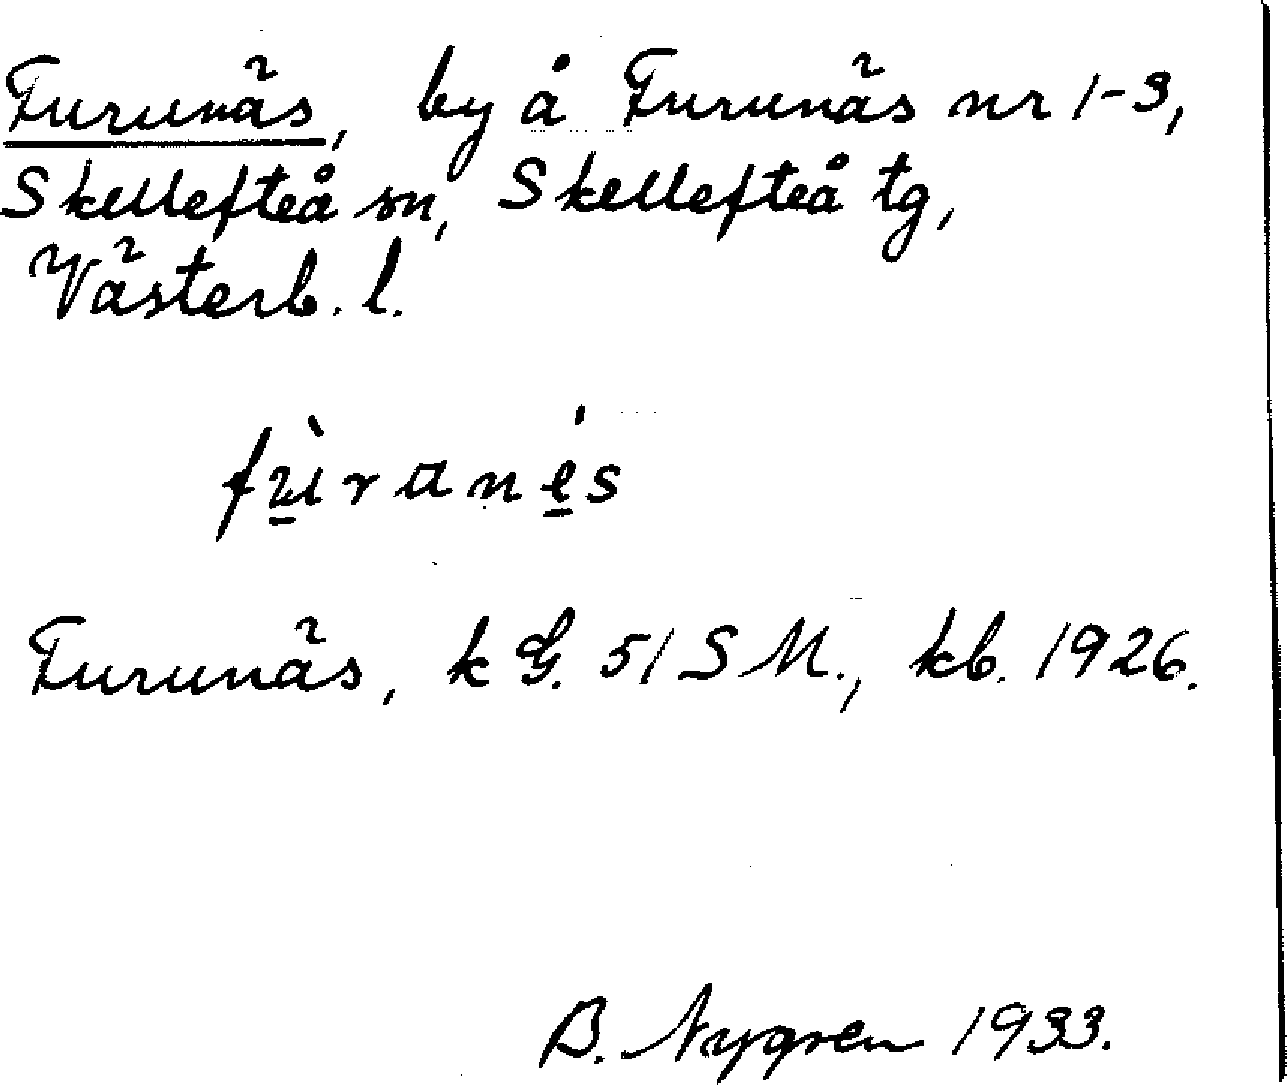 Furunäs, by å Furunäs nr 1-3,
Skellefteå sn, Skellefteå tg,
Västerb. l.
fùranés
Furunäs, k G. 51 S M., kb. 1926.
B. Nygren 1933.